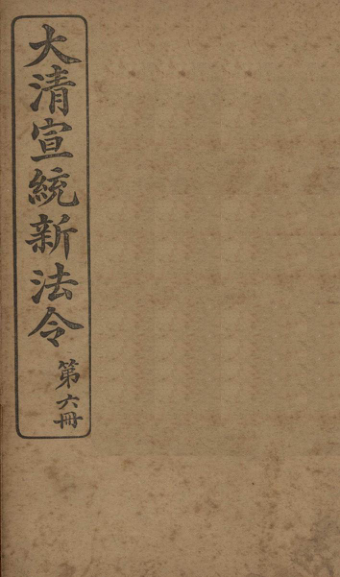 大清宣統新法令
第六冊